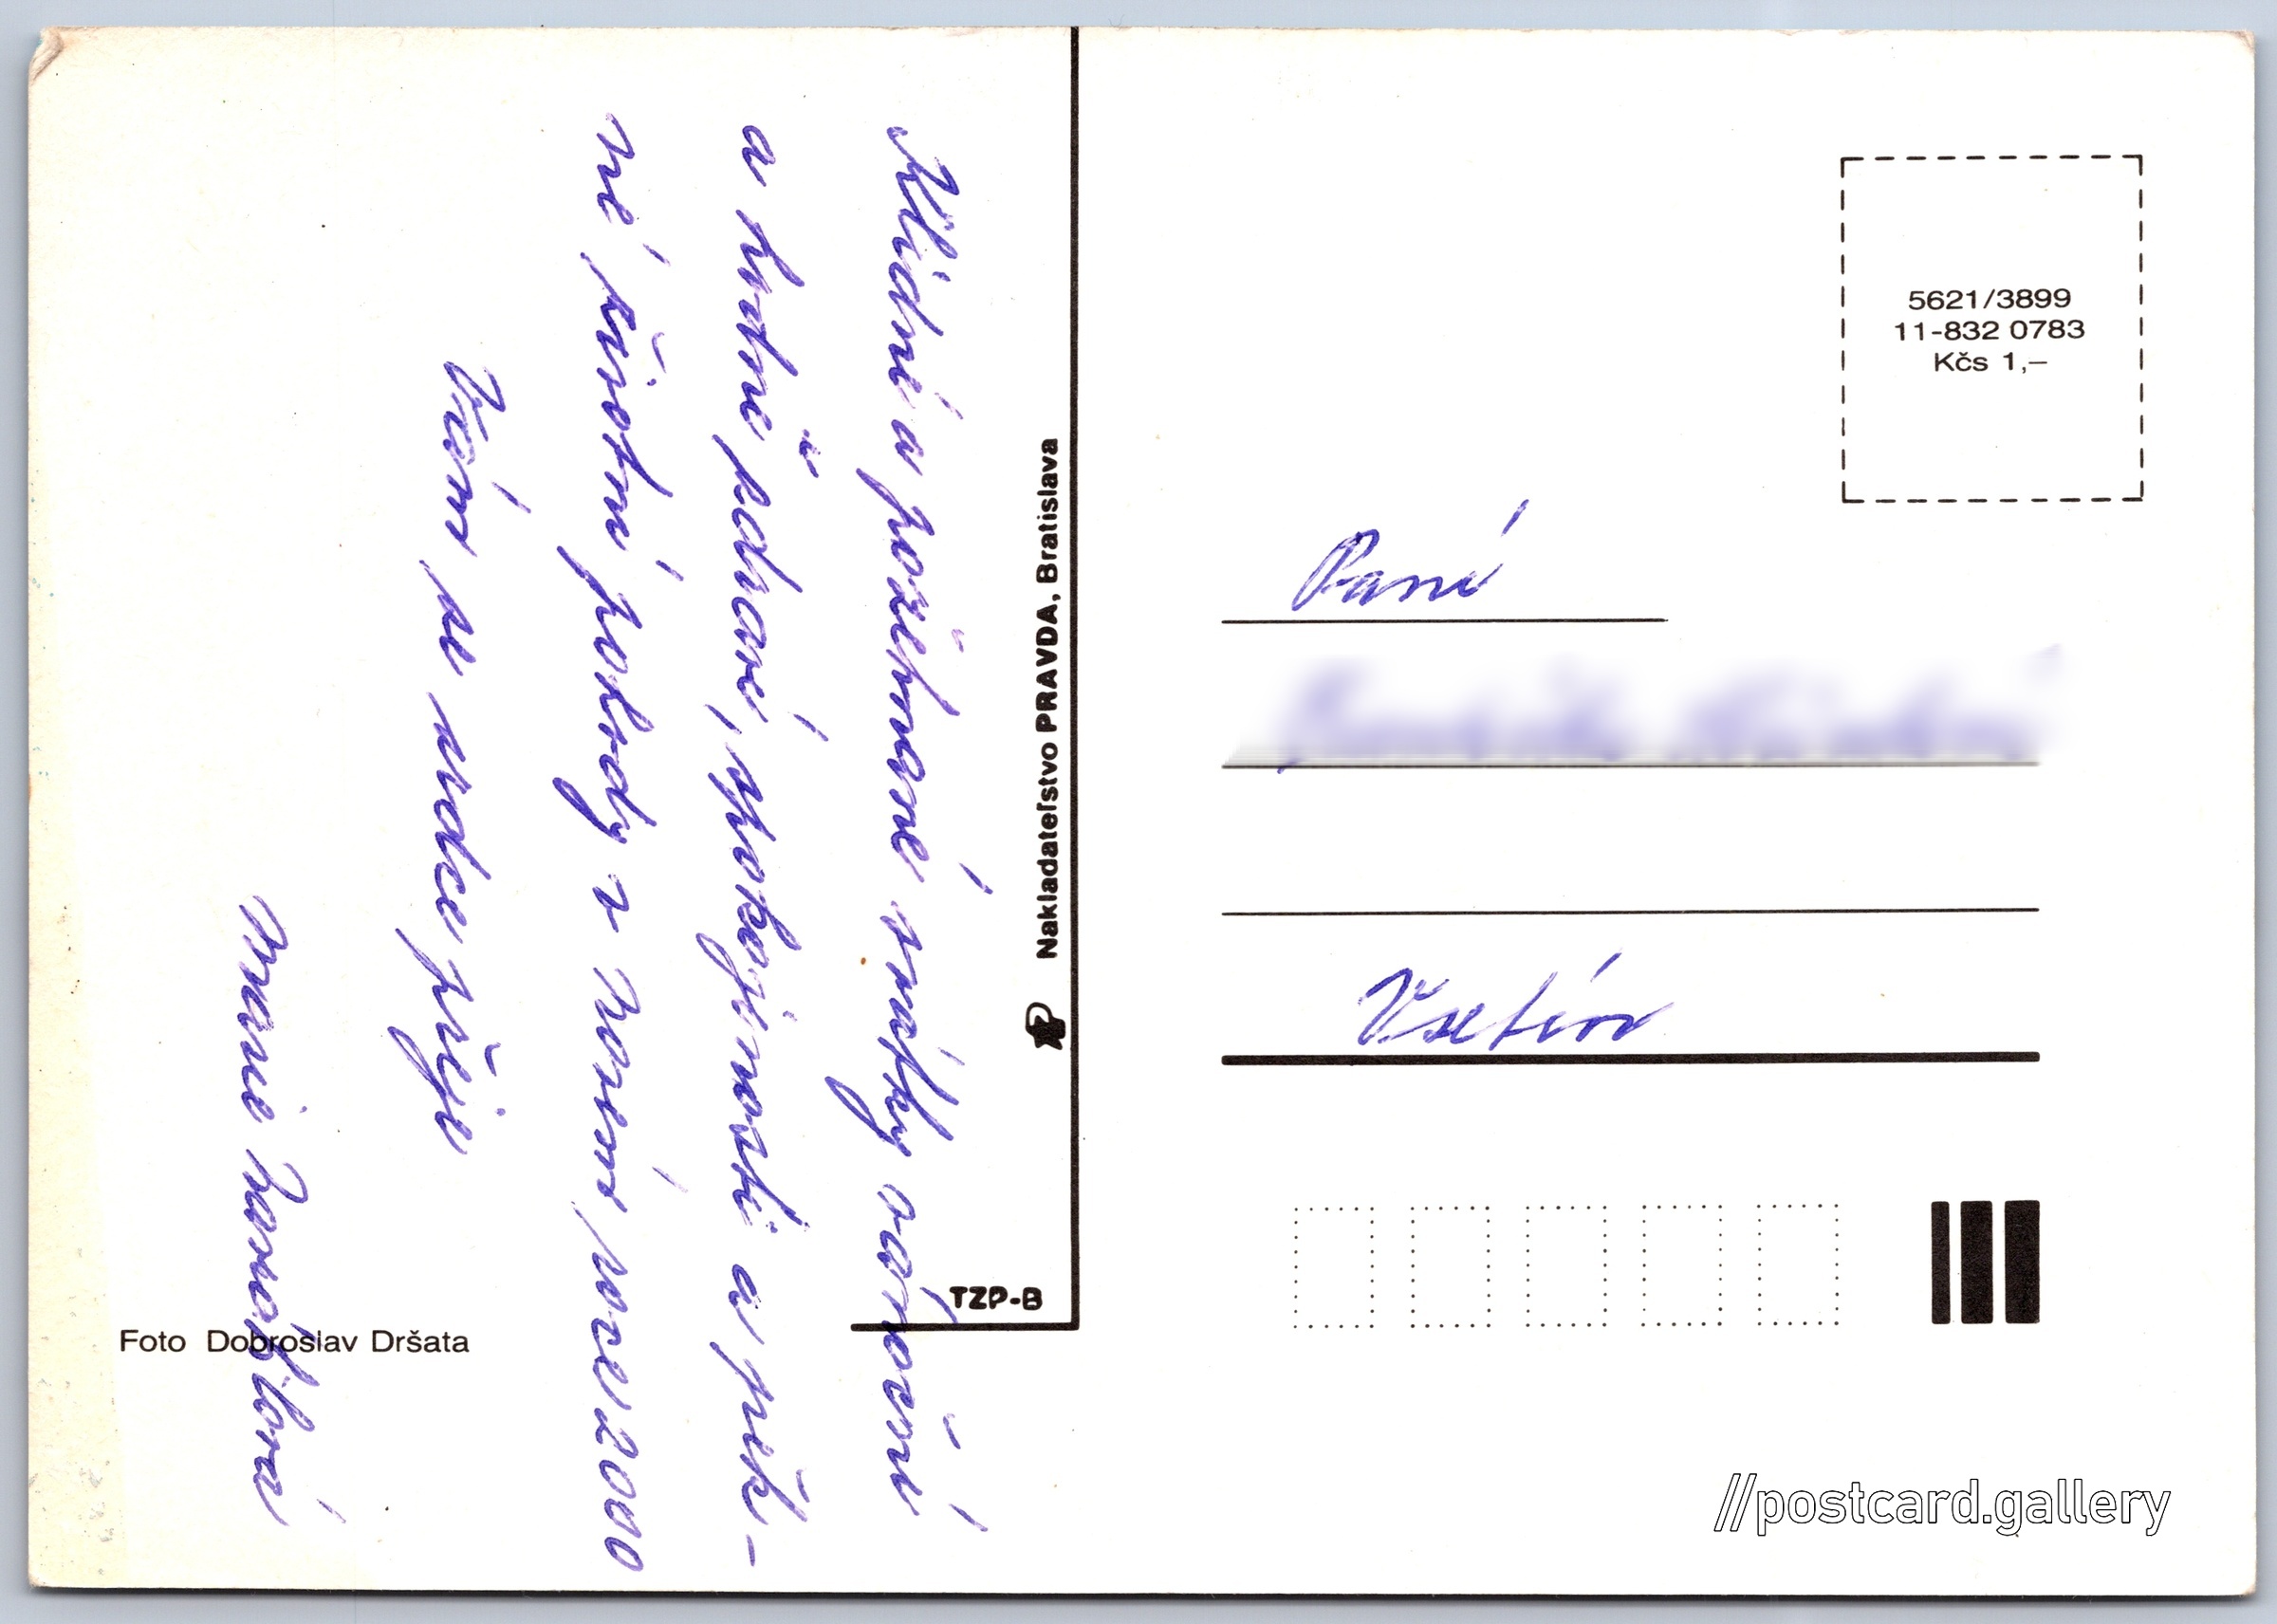 Klidné a požehnané svátky vánoční
a hodně zdraví, spokojenosti a pěk-
né životní pohody v novém roce 2000
Vám ze srdce přeje
Nakladateľstvo PRAVDA, Bratislava
TZP-B
Foto Dobroslav Dršata
5621/3899
11-832 0783
Kčs 1,–
Paní
Vsetín
//postcard.gallery